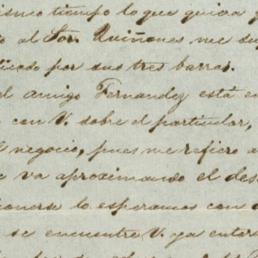 mismo tiempo lo que quiera
al Sor. Quiñones me
por sus tres barras.
amigo Fernandez está en
con V. sobre el particular,
negocio, pues me refiero a
e va aproximando el des
lo esperamos con
se encuentre V. ya enter